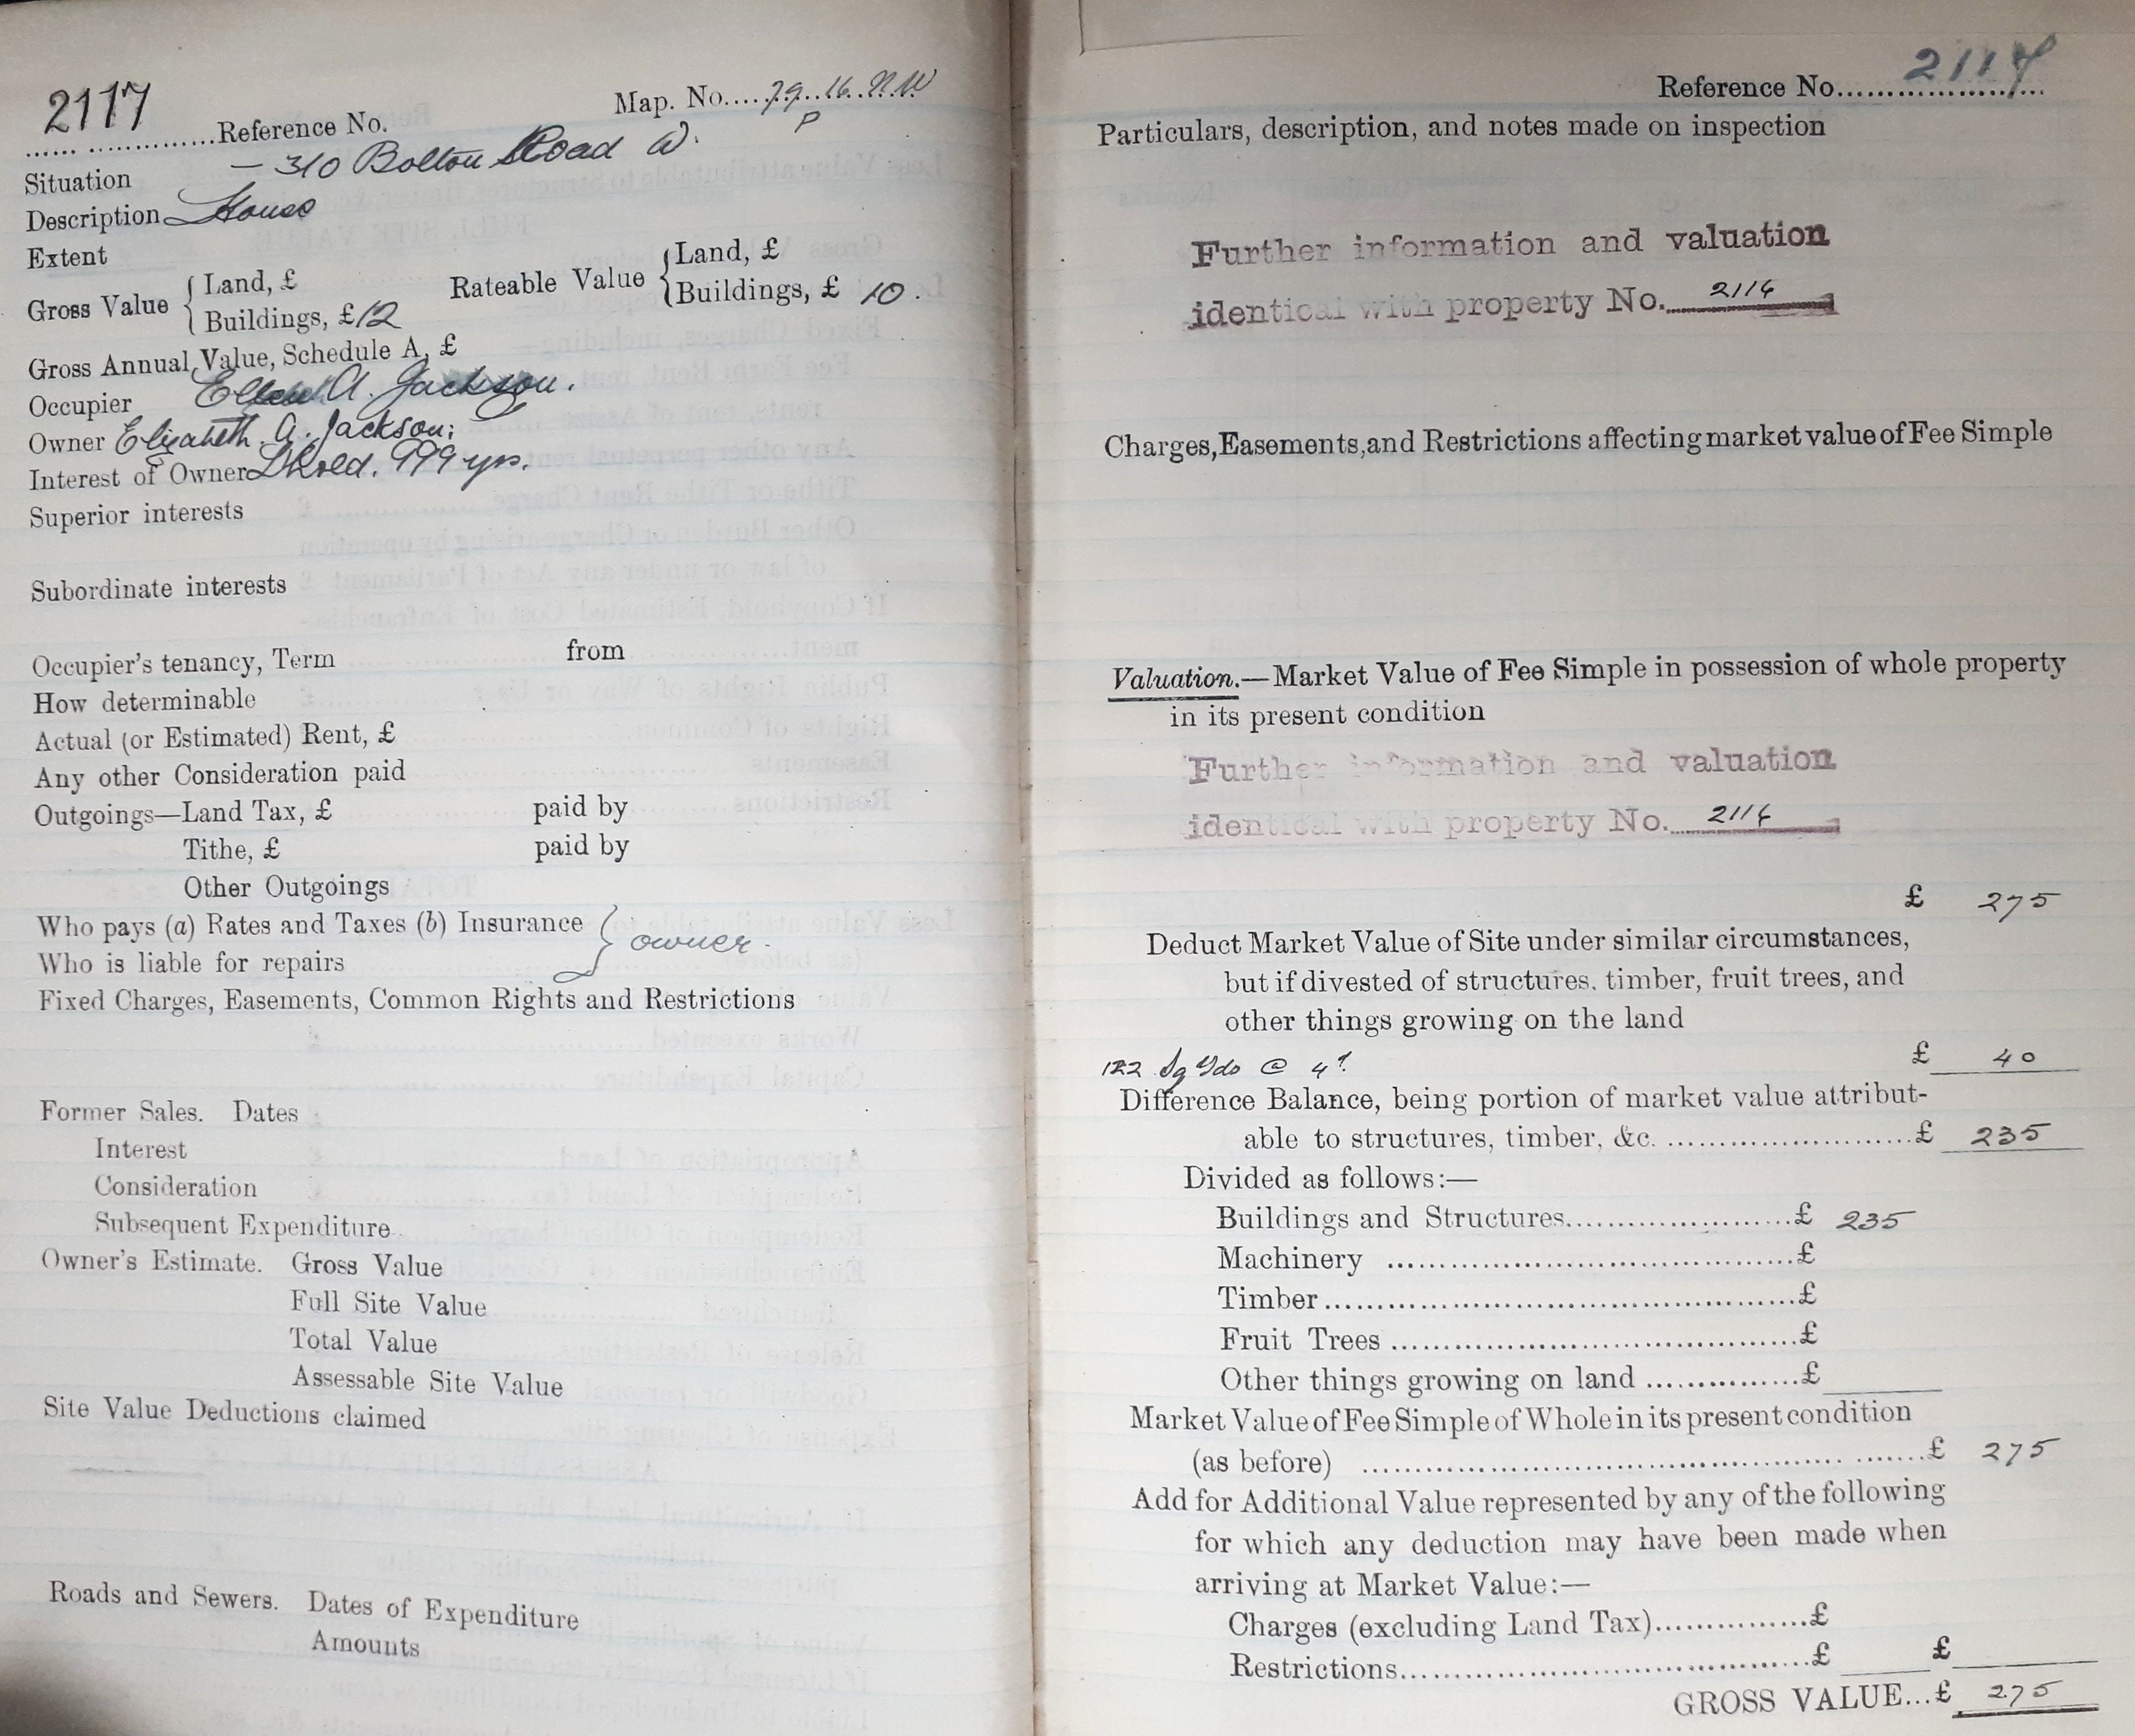 2117 Reference No.
Map. No. 79. 16. N.W
P
Situation – 310 Bolton Road W.
Description House
Extent
Gross Value { Land, £
Buildings, £ 12
Rateable Value { Land, £
Buildings, £ 10.
Gross Annual Value, Schedule A, £
Occupier Ellen A. Jackson.
Owner Elizabeth. A. Jackson;
Interest of Owner LHold. 999 yrs.
Superior interests
Subordinate interests
Occupier's tenancy, Term from
How determinable
Actual (or Estimated) Rent, £
Any other Consideration paid
Outgoings—Land Tax, £ paid by
Tithe, £ paid by
Other Outgoings
Who pays (a) Rates and Taxes (b) Insurance } owner.
Who is liable for repairs
Fixed Charges, Easements, Common Rights and Restrictions
Former Sales. Dates
Interest
Consideration
Subsequent Expenditure
Owner's Estimate. Gross Value
Full Site Value
Total Value
Assessable Site Value
Site Value Deductions claimed
Roads and Sewers. Dates of Expenditure
Amounts
Reference No. 2117
Particulars, description, and notes made on inspection
Further information and valuation
identical with property No. 2116
Charges, Easements, and Restrictions affecting market value of Fee Simple
Valuation.—Market Value of Fee Simple in possession of whole property
in its present condition
Further information and valuation
identical with property No. 2116
£ 275
Deduct Market Value of Site under similar circumstances,
but if divested of structures, timber, fruit trees, and
other things growing on the land
122 Sq Yds @ 4
£ 40
Difference Balance, being portion of market value attribut-
able to structures, timber, &c. £ 235
Divided as follows:—
Buildings and Structures £ 235
Machinery £
Timber £
Fruit Trees £
Other things growing on land £
Market Value of Fee Simple of Whole in its present condition
(as before) £ 275
Add for Additional Value represented by any of the following
for which any deduction may have been made when
arriving at Market Value:—
Charges (excluding Land Tax) £
Restrictions £ £
GROSS VALUE...£ 275